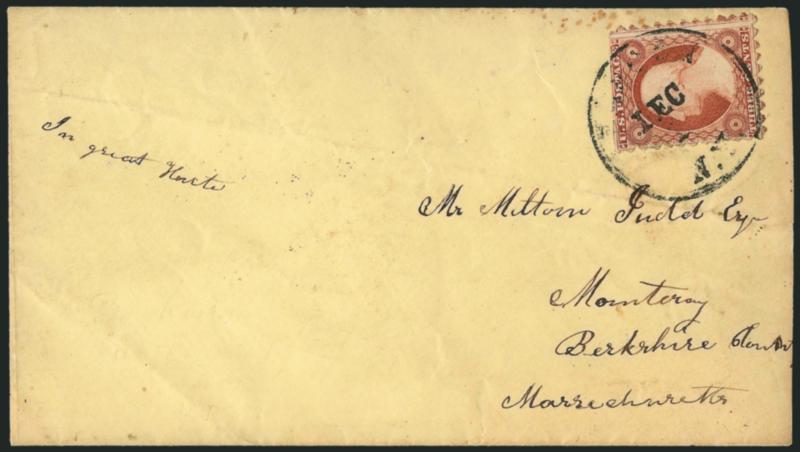 In great Haste
DEC
N.Y.
Mr Milton Judd Esq
Monterey
Berkshire County
Massachusetts